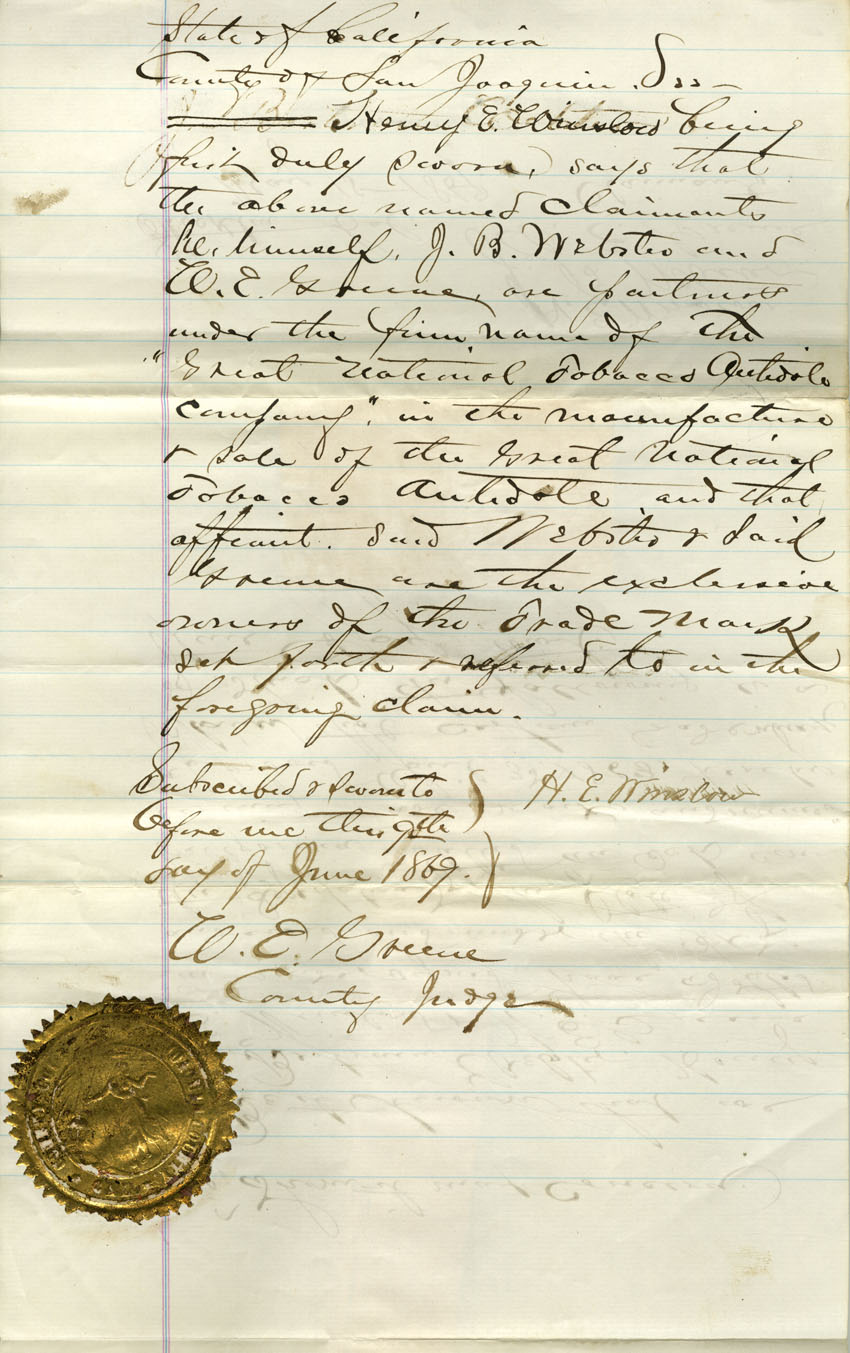 State of California
County of San Joaquin. } ss —
Henry E. Winslow being
first duly sworn, says that
the above named Claimants
he, himself, J. B. Webster and
W. E. Greene, are partners
under the firm name of The
"Great National Tobacco Antidote
Company", in the manufacture
& sale of the Great National
Tobacco Antidote and that
affiant. Said Webster & Said
Greene are the exclusive
owners of the Trade Mark
set forth & referred to in the
foregoing claim.
Subscribed & sworn to } H. E. Winslow
before me this 9th
day of June 1869.
W. E. Greene
County Judge